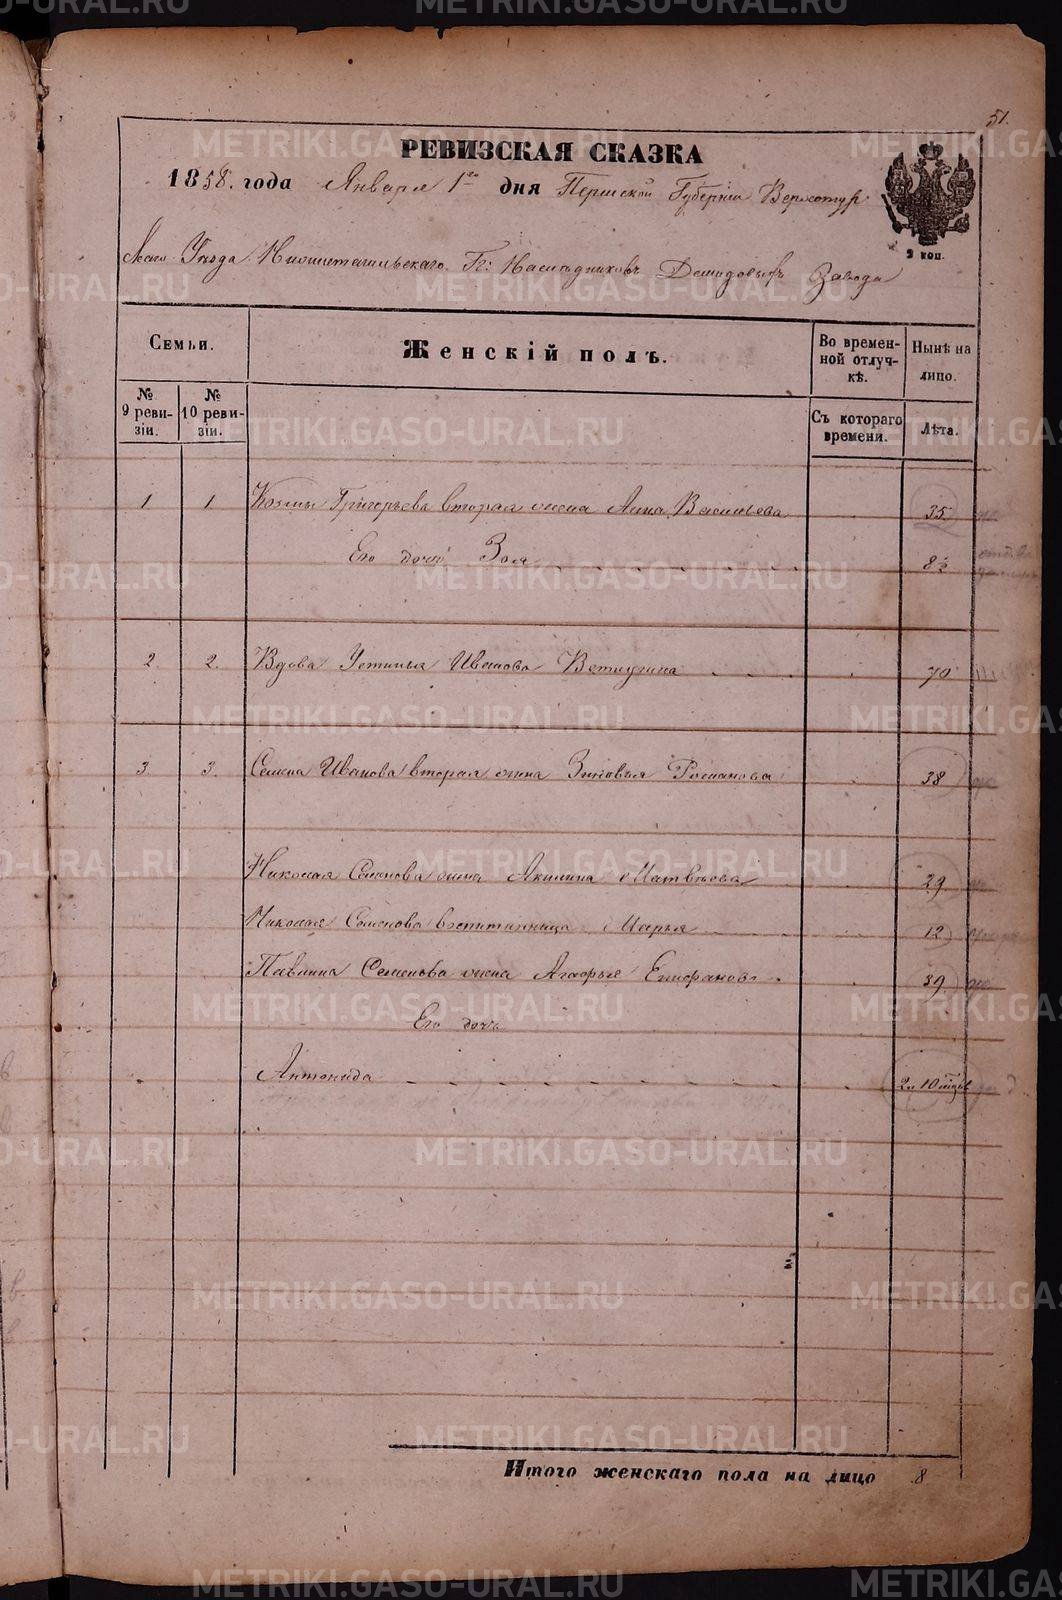 51.
РЕВИЗСКАЯ СКАЗКА
1858. года Января 1го дня Пермской Губерніи Верхотур
скаго Уѣзда Нижнетагильскаго Гг: Наслѣдниковъ Демидовыхъ Завода
9 коп.
Семьи.
Женскій полъ.
Во времен-
ной отлуч-
кѣ.
Нынѣ на
лицо.
№
9 реви-
зіи.
№
10 реви-
зіи.
Съ котораго
времени.
Лѣта.
1 1 Козьмы Григорьева вторая жена Анна Васильева 35
Его дочь Зоя 8½
2 2. Вдова Устинья Иванова Ветлугина 70
3 3. Семена Иванова вторая жена Зиновья Романова 38
Николая Семенова жена Акилина Матвѣева 29
Николая Семенова воспитанница Марья 12
Павлина Семенова жена Агафья Епифанова 39
Его дочь
Антонида 2 и 10 мѣсяц
Итого женскаго пола на лицо 8
METRIKI.GASO-URAL.RU